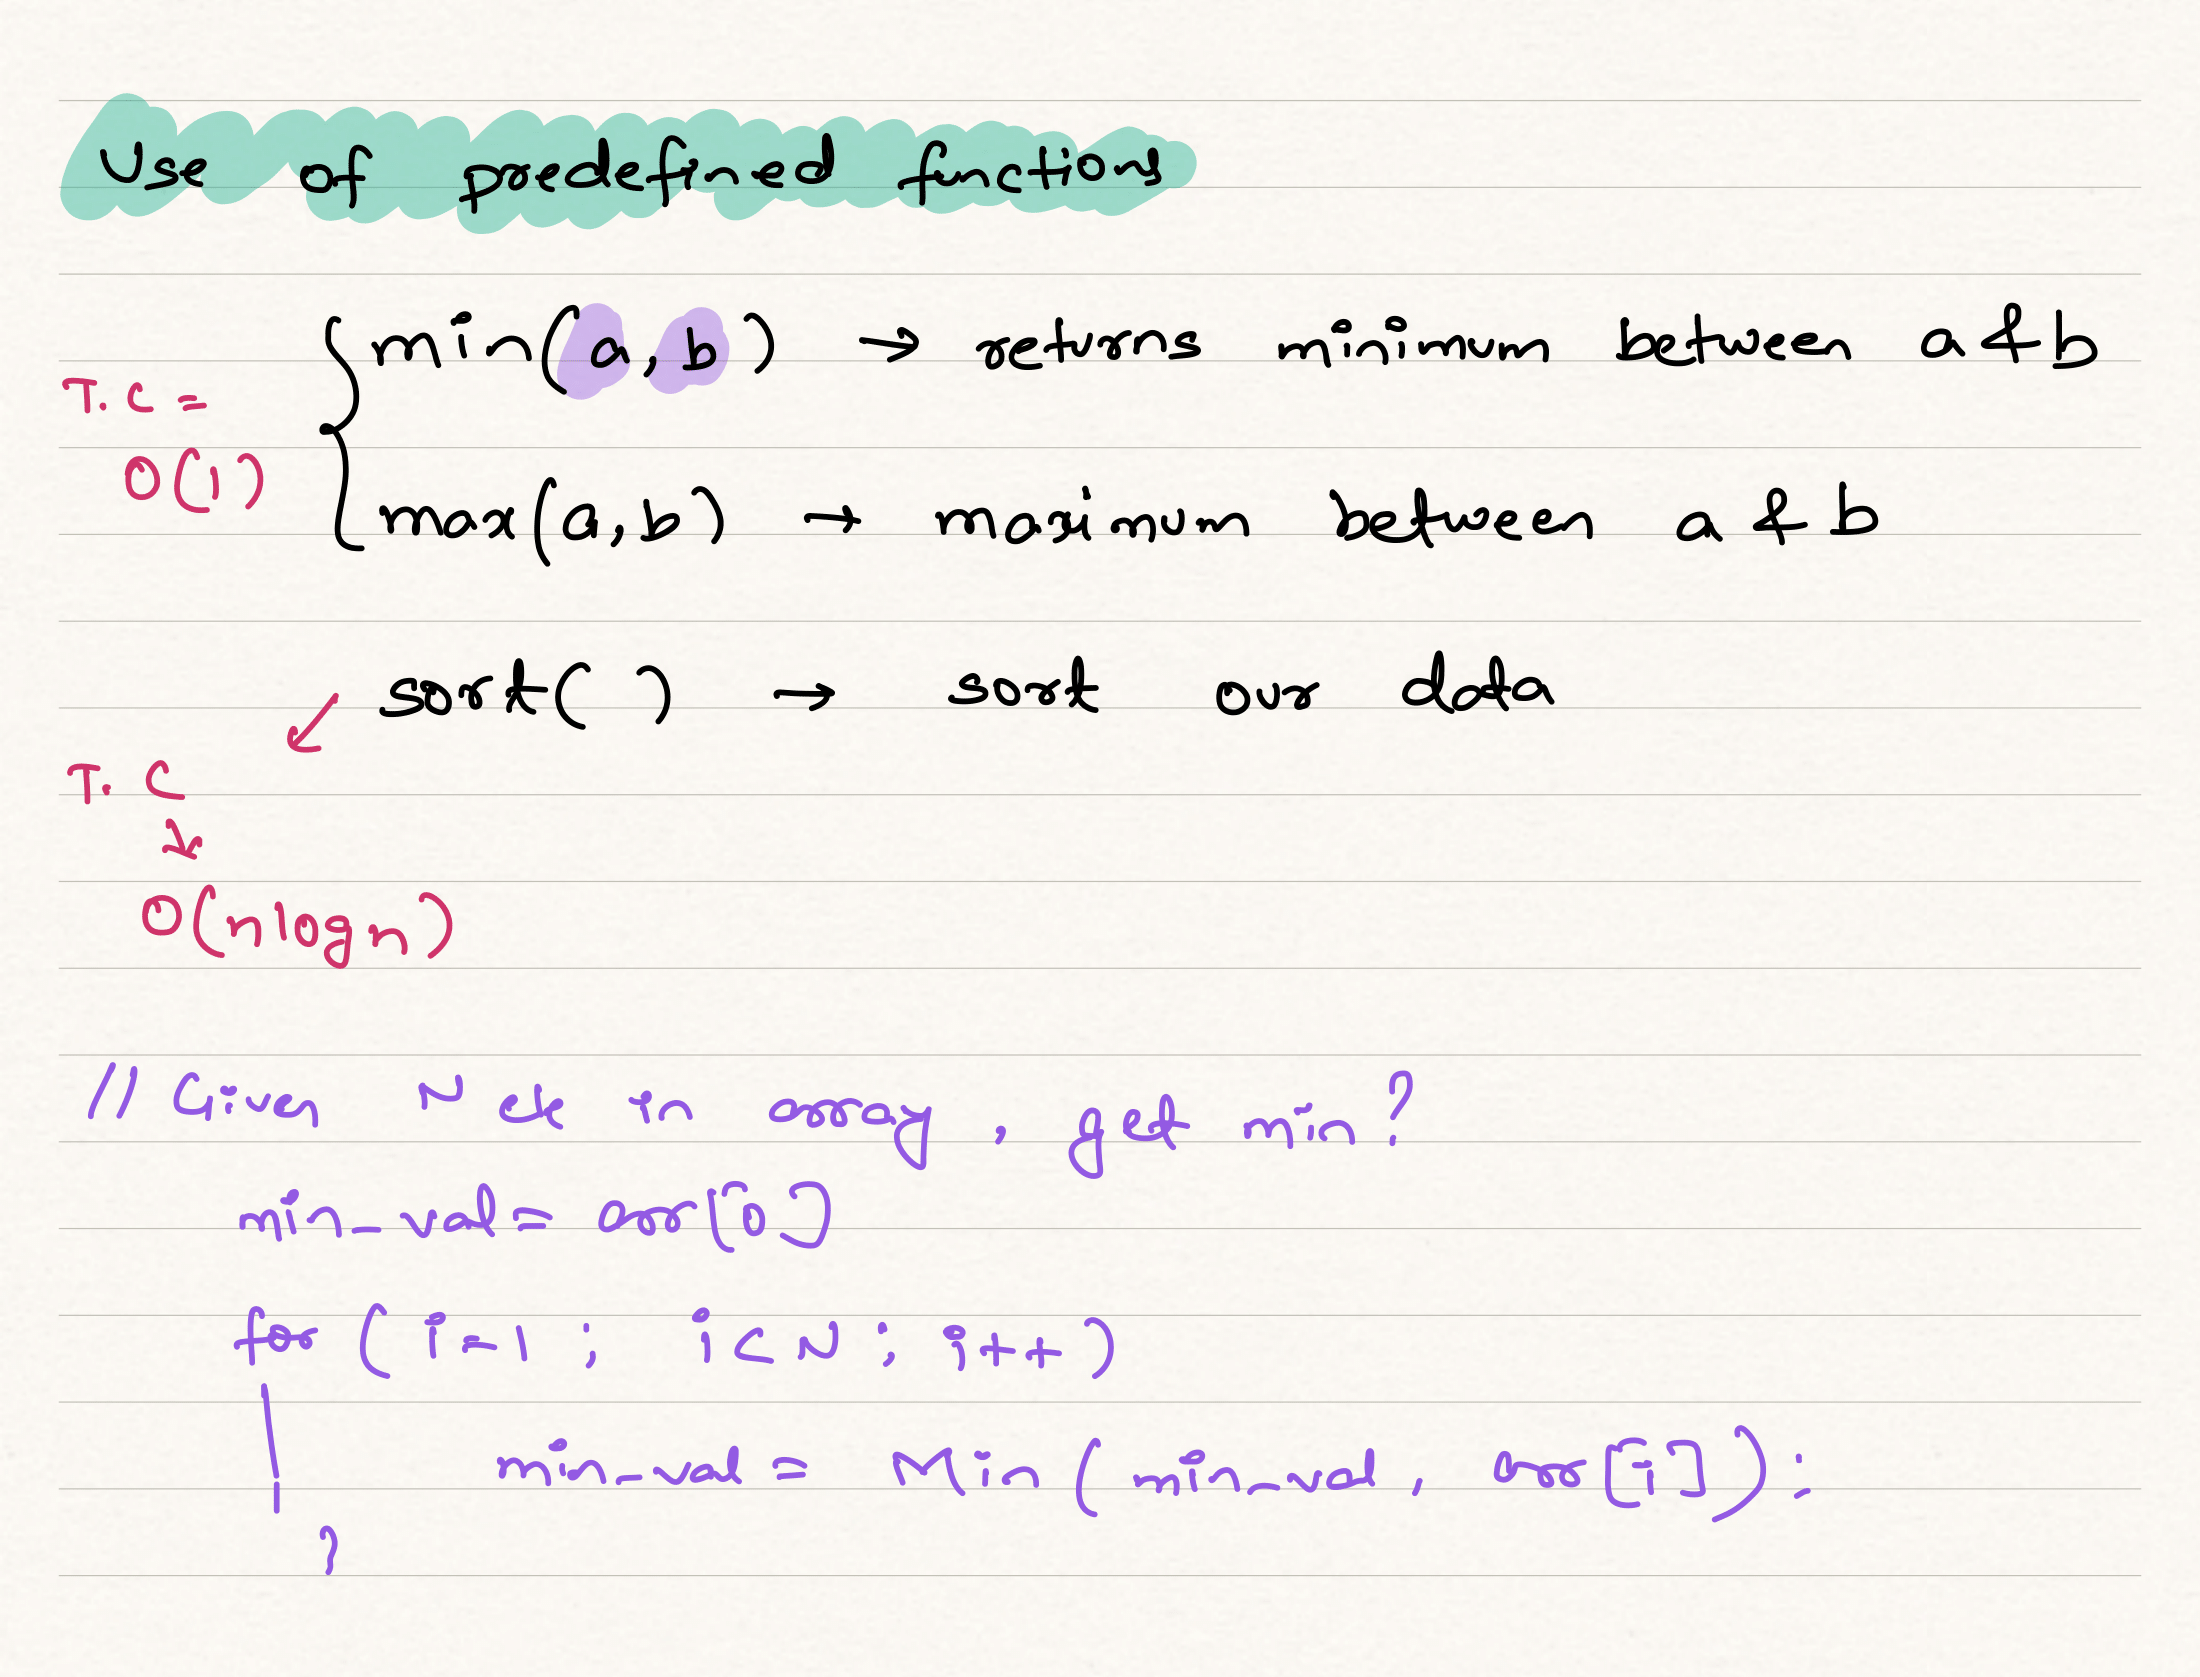 Use of predefined functions
min(a, b) → returns minimum between a & b
T.C =
O(1)
max(a, b) → maximum between a & b
sort( ) → sort our data
T.C
O(nlogn)
// Given N ele in array, get min?
min_val = arr[0]
for ( i=1 ; i<N ; i++ )
min_val = Min ( min_val, arr[i]);
}